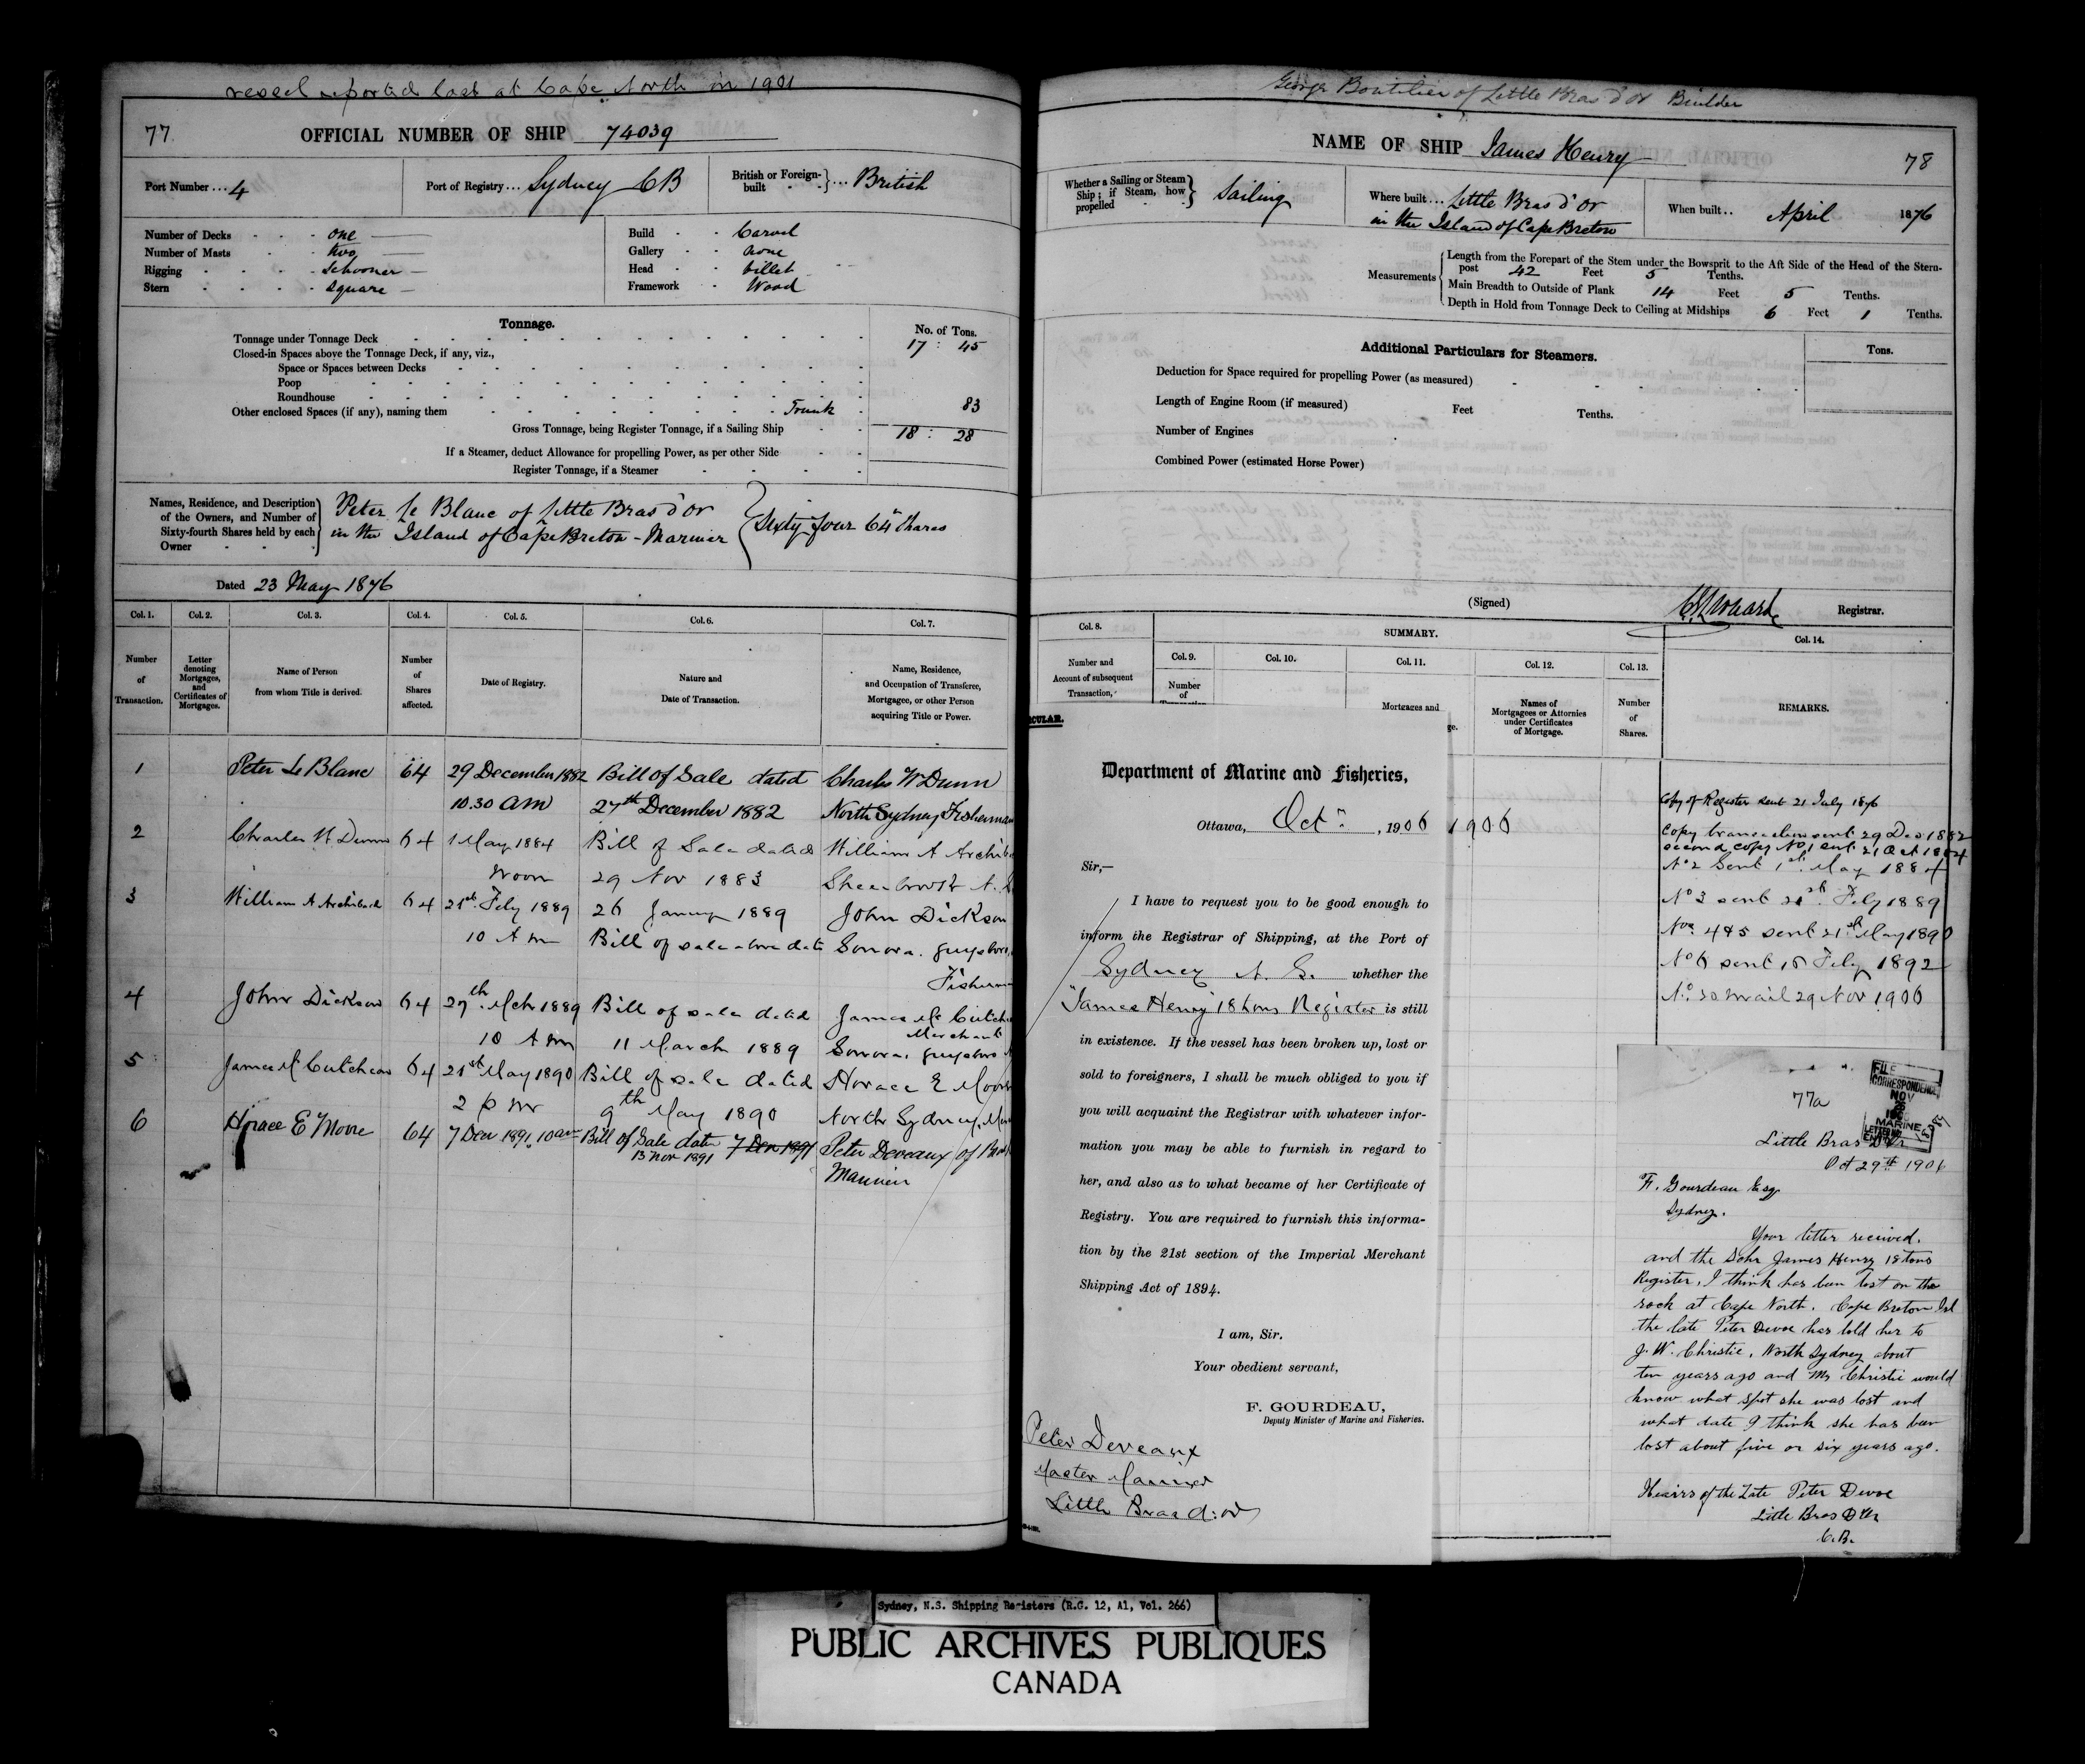 vessel reported lost at Cape North in 1901
77
OFFICIAL NUMBER OF SHIP 74039
Port Number ... 4
Port of Registry ... Sydney CB
British or Foreign-built } ... British
Number of Decks - - - one
Number of Masts - - two
Rigging - - - - Schooner
Stern - - - - Square
Build - - Carvel
Gallery - - none
Head - - billet
Framework - Wood
Tonnage.
No. of Tons.
Tonnage under Tonnage Deck 17 : 45
Closed-in Spaces above the Tonnage Deck, if any, viz.,
Space or Spaces between Decks
Poop
Roundhouse
Other enclosed Spaces (if any), naming them Trunk 83
Gross Tonnage, being Register Tonnage, if a Sailing Ship 18 : 28
If a Steamer, deduct Allowance for propelling Power, as per other Side
Register Tonnage, if a Steamer
Names, Residence, and Description
of the Owners, and Number of
Sixty-fourth Shares held by each
Owner
Peter Le Blanc of Little Bras d'or
in the Island of Cape Breton - Mariner
Sixty four 64th Shares
Dated 23 May 1876
Col. 1. Col. 2. Col. 3. Col. 4. Col. 5. Col. 6. Col. 7.
Number of Transaction.
Letter denoting Mortgages, and Certificates of Mortgages.
Name of Person from whom Title is derived.
Number of Shares affected.
Date of Registry.
Nature and Date of Transaction.
Name, Residence, and Occupation of Transferee, Mortgagee, or other Person acquiring Title or Power.
1 Peter Le Blanc 64 29 December 1882 Bill of Sale dated Charles W Dunn
10.30 am 27th December 1882 North Sydney Fisherman
2 Charles W Dunn 64 1 May 1884 Bill of Sale dated William A
Noon 29 Nov 1883
3 William A Archibald 64 21st Feby 1889 26 Januy 1889 John Dickson
10 A m Bill of sale above date Sonora. Guysboro,
4 John Dickson 64 27th Mch 1889 Bill of sale dated James Mc
Merchant
10 A m 11 March 1889 Sonora, Guysboro
5 James Mc Cutcheon 64 21st May 1890 Bill of sale dated Horace E Moore
2 p m 9th May 1890 North Sydney,
6 Horace E Moore 64 7 Dec 1891. 10 am Bill of Sale date 7 Dec 1891 Peter Deveaux of
13 Nov 1891
Mariner
George Boutilier of Little Bras d'or Builder
NAME OF SHIP James Henry
78
Whether a Sailing or Steam Ship; if Steam, how propelled } Sailing
Where built ... Little Bras d'or
in the Island of Cape Breton
When built .. April 1876
Measurements
Length from the Forepart of the Stem under the Bowsprit to the Aft Side of the Head of the Stern-
post 42 Feet 5 Tenths.
Main Breadth to Outside of Plank 14 Feet 5 Tenths.
Depth in Hold from Tonnage Deck to Ceiling at Midships 6 Feet 1 Tenths.
Additional Particulars for Steamers.
Tons.
Deduction for Space required for propelling Power (as measured)
Length of Engine Room (if measured) Feet Tenths.
Number of Engines
Combined Power (estimated Horse Power)
(Signed) Registrar.
Col. 8. SUMMARY. Col. 14.
Number and Account of subsequent Transaction,
Col. 9. Col. 10. Col. 11. Col. 12. Col. 13.
Number of
Mortgages and
Names of Mortgagees or Attornies under Certificates of Mortgage.
Number of Shares.
REMARKS.
Copy of Register sent 21 July 1876
Copy transaction sent 29 Dec 1882
second copy No 1 sent 21 Oct 1884
No 2 Sent 1st May 1884
No 3 sent 21st Feby 1889
Nos. 4 & 5 sent 21st May 1890
No 6 sent 18 Feby 1892
29 Nov 1906
CULAR.
Department of Marine and Fisheries,
Ottawa, Oct , 1906 1906
Sir,—
I have to request you to be good enough to
inform the Registrar of Shipping, at the Port of
Sydney N. S. whether the
"James Henry" 18 tons Register is still
in existence. If the vessel has been broken up, lost or
sold to foreigners, I shall be much obliged to you if
you will acquaint the Registrar with whatever infor-
mation you may be able to furnish in regard to
her, and also as to what became of her Certificate of
Registry. You are required to furnish this informa-
tion by the 21st section of the Imperial Merchant
Shipping Act of 1894.
I am, Sir.
Your obedient servant,
F. GOURDEAU,
Deputy Minister of Marine and Fisheries.
Peter Deveaux
Master Mariner
Little Bras d'or
77a
FILE
CORRESPONDENCE
NOV
MARINE
Little Bras D'Or
Oct 29th 1906
F. Gourdeau Esq
Sydney.
Your letter received.
and the Schr James Henry 18 tons
Register, I think has been lost on the
rock at Cape North. Cape Breton Isl
the late Peter Devoe has told her to
J. W. Christie, North Sydney about
ten years ago and Mr Christie would
know what spot she was lost and
what date I think she has been
lost about five or six years ago.
Heairs of the Late Peter Devoe
Little Bras D'Or
C.B.
Sydney, N.S. Shipping Registers (R.G. 12, A1, Vol. 266)
PUBLIC ARCHIVES PUBLIQUES
CANADA